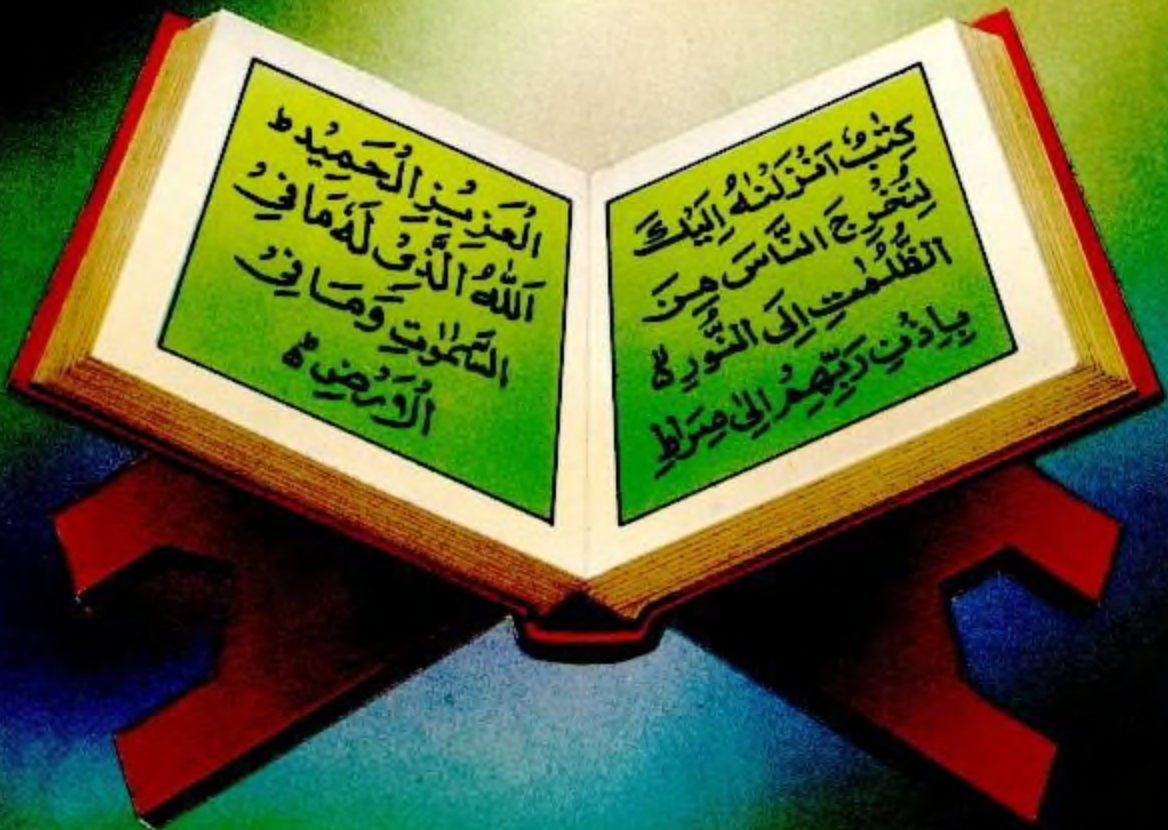 كِتٰبٌ اَنْزَلْنٰهُ اِلَيْكَ
لِتُخْرِجَ النَّاسَ مِنَ
الظُّلُمٰتِ اِلَى النُّوْرِ ۙ
بِاِذْنِ رَبِّهِمْ اِلٰى صِرَاطِ
الْعَزِيْزِ الْحَمِيْدِ ط
اَللّٰهُ الَّذِيْ لَهٗ مَا فِيْ
السَّمٰوٰتِ وَمَا فِيْ
الْاَرْضِ ۙ